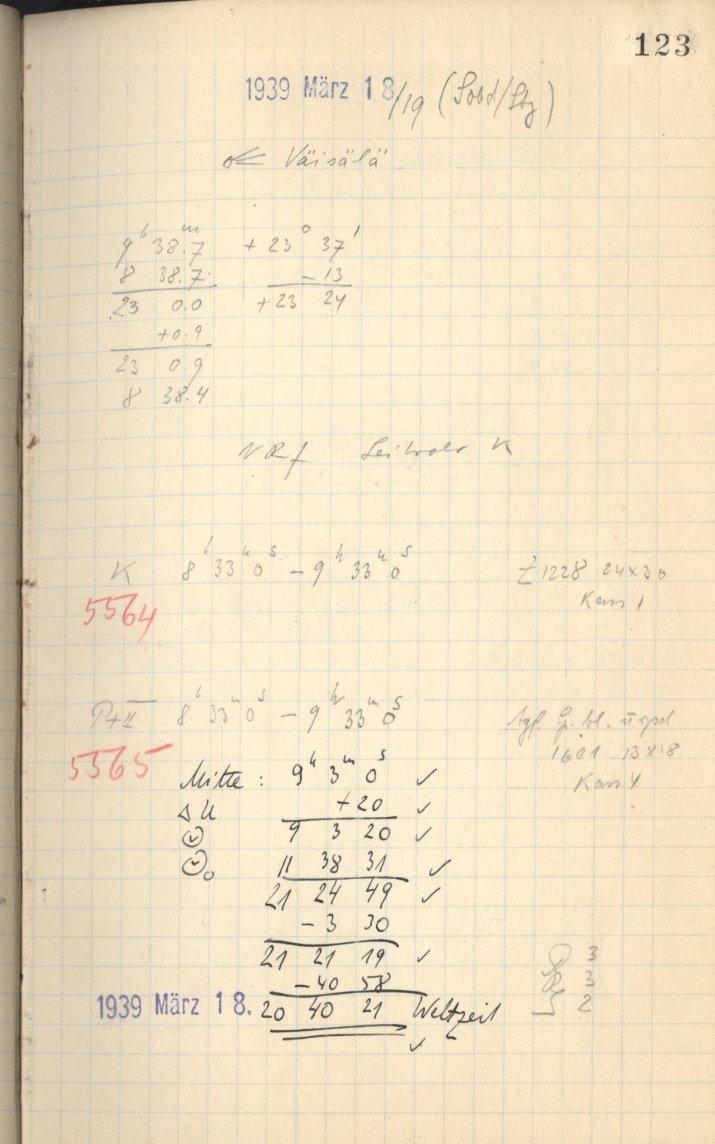 123
1939 März 18/19 (Sobd/Stg)
Väisälä
9ʰ 38.7ᵐ + 23° 37'
8 38.7 - 13
23 0.0 + 23 24
+0.9
23 0.9
8 38.4
Leitrohr K
K 8ʰ 33ᵐ 0ˢ - 9ʰ 33ᵐ 0ˢ Z1228 24x30
Kass 1
5564
P+II 8ʰ 33ᵐ 0ˢ - 9ʰ 33ᵐ 0ˢ
1601 13x18
5565
Kass 4
Mitte: 9ʰ 3ᵐ 0ˢ ✓
Δ U +20 ✓
9 3 20 ✓
11 38 31 ✓
21 24 49 ✓
- 3 30
21 21 19 ✓
3
- 40 58
3
1939 März 18. 20 40 21 Weltzeit
2
✓